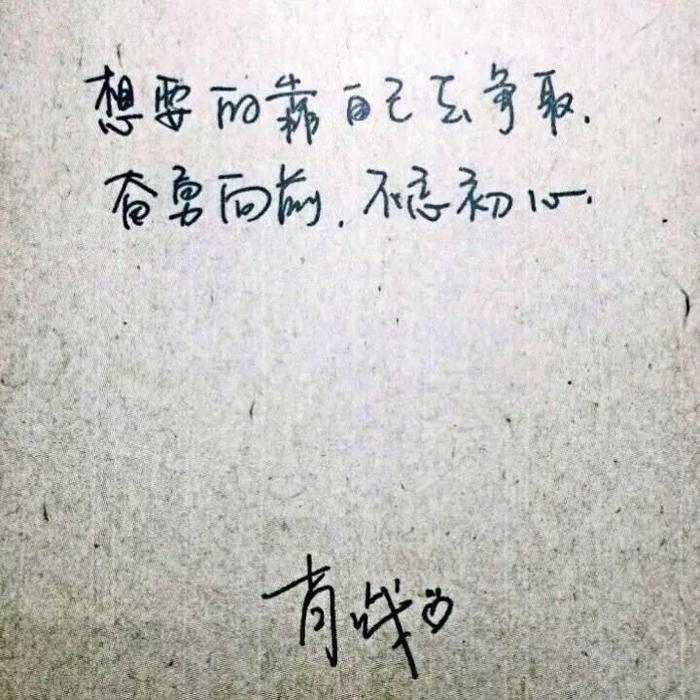 想要的靠自己去争取.
奋勇向前.不忘初心.
肖战